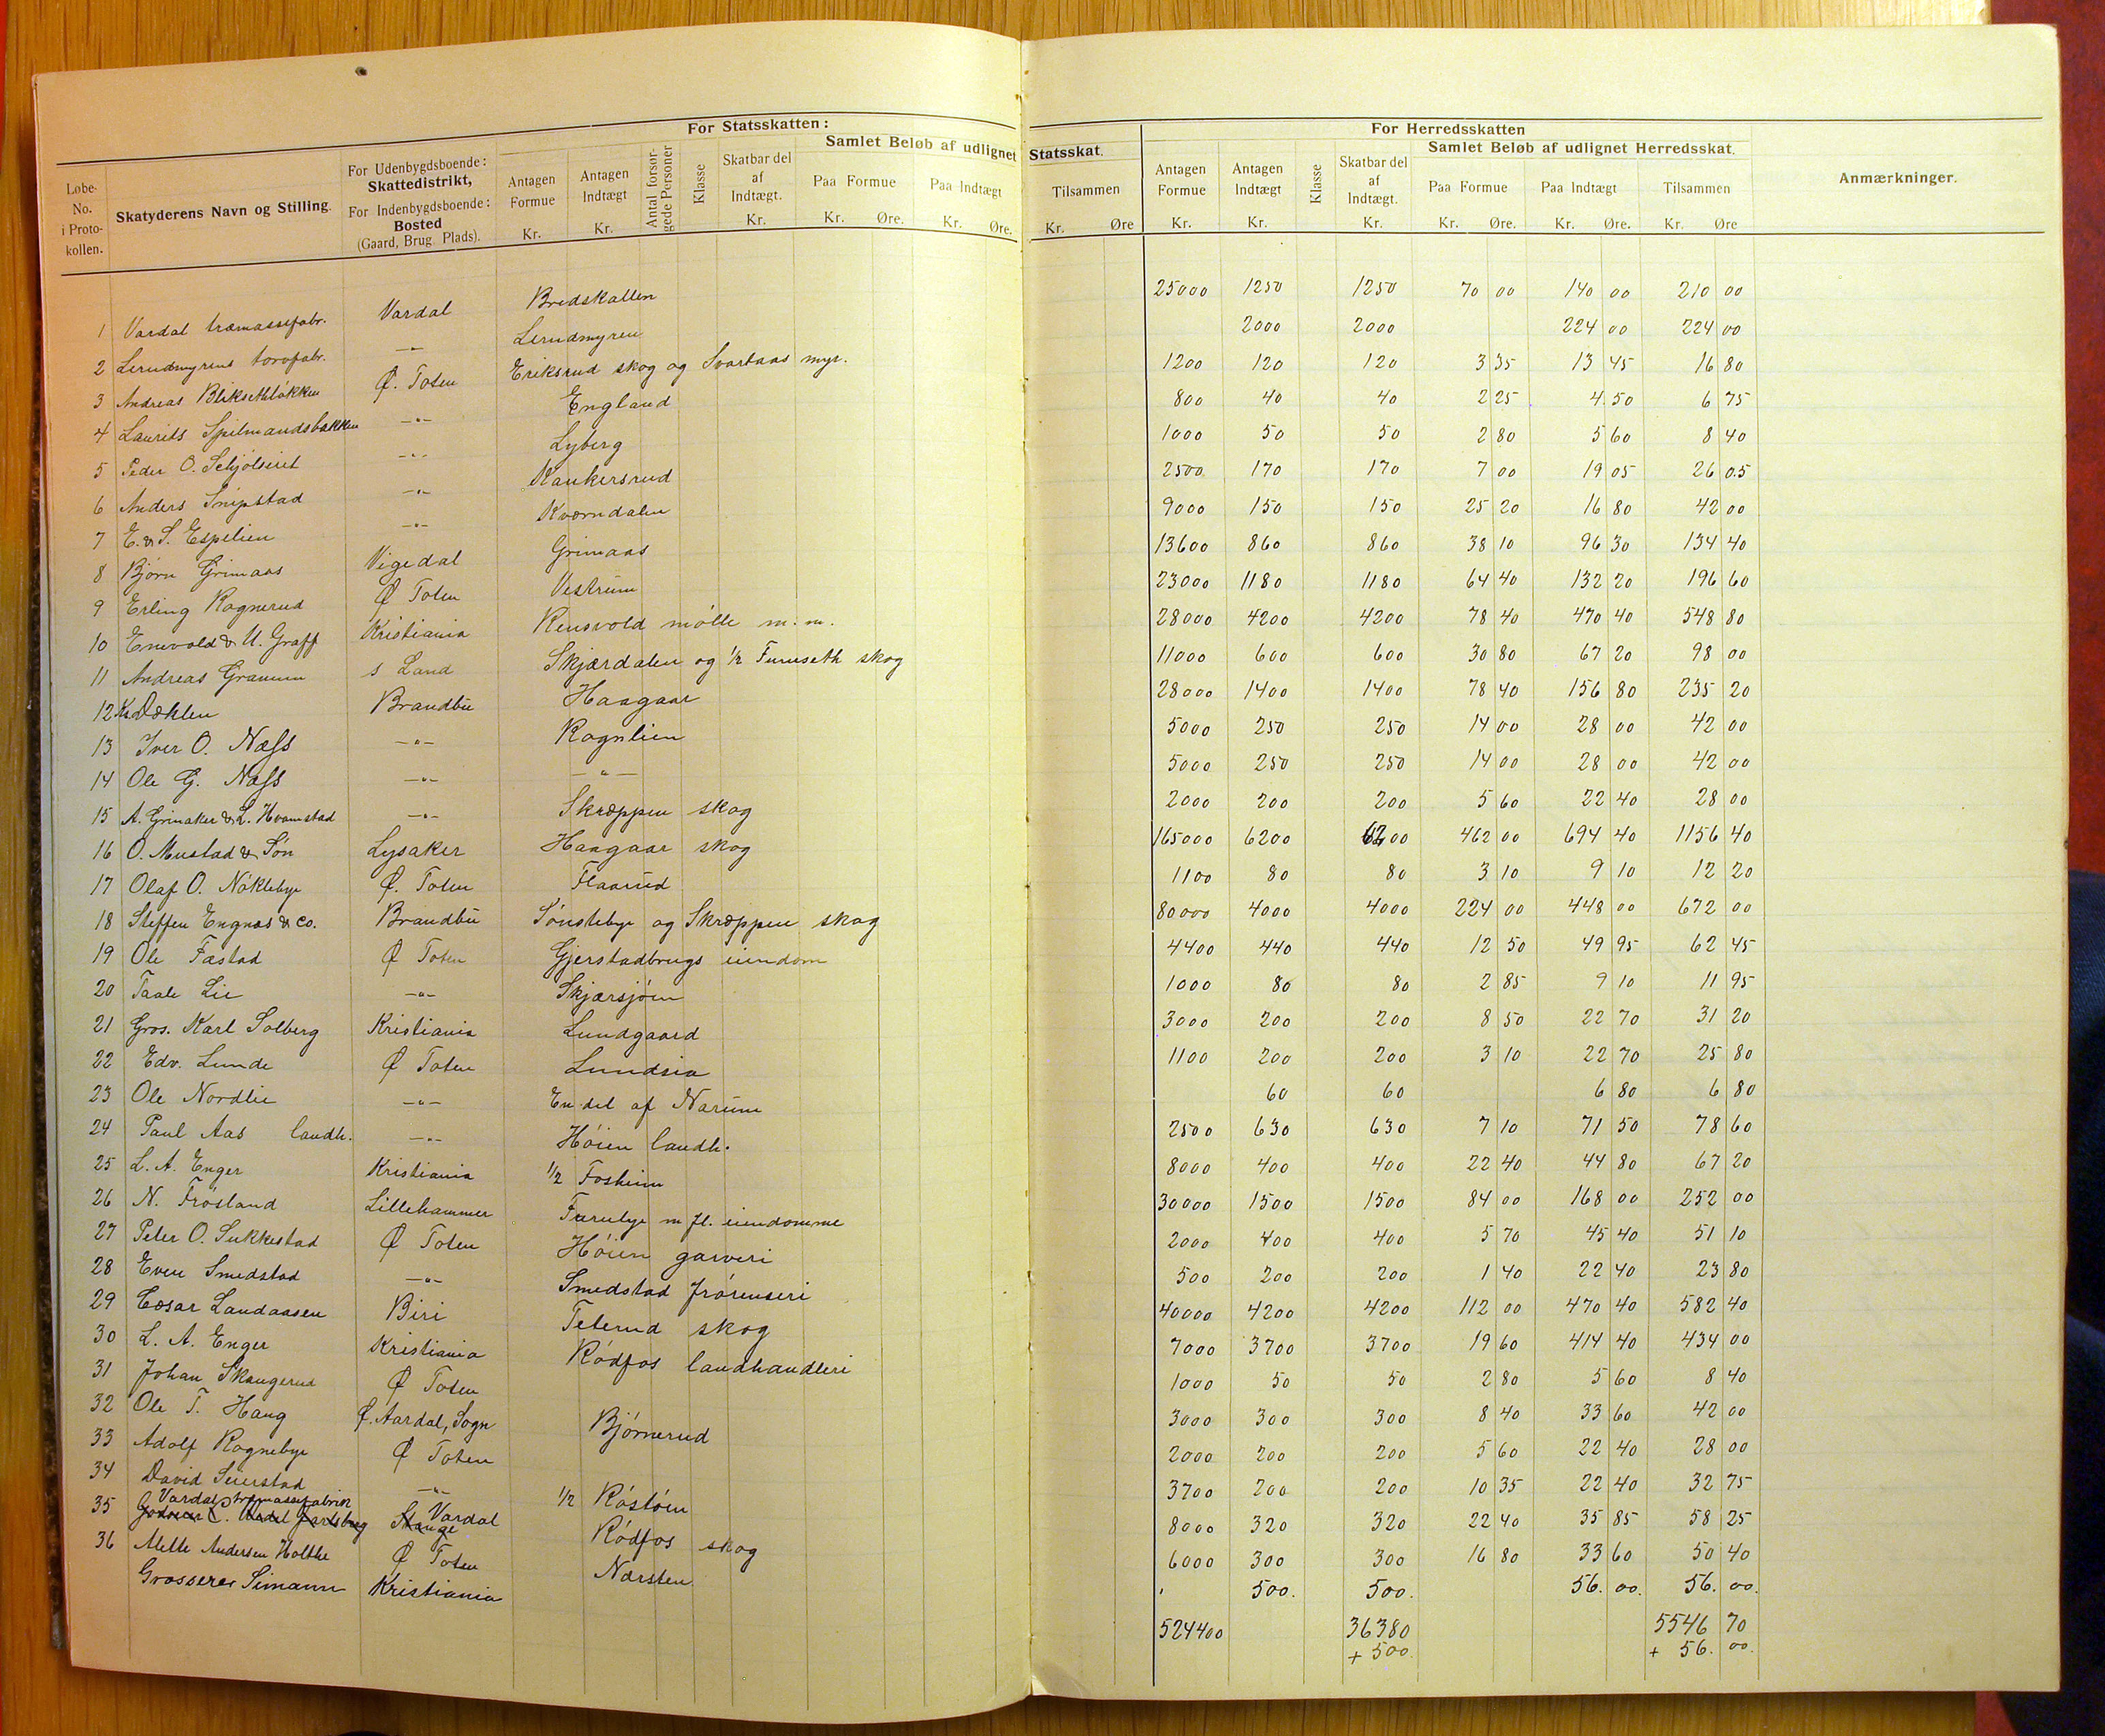 For Statsskatten:
For Herredsskatten
Løbe-No. i Protokollen.
Skatyderens Navn og Stilling.
For Udenbygdsboende: Skattedistrikt, For Indenbygdsboende: Bosted (Gaard, Brug, Plads).
Antagen Formue Kr.
Antagen Indtægt Kr.
Antal forsørgede Personer
Klasse
Skatbar del af Indtægt. Kr.
Samlet Beløb af udlignet Statsskat.
Paa Formue Kr. Øre.
Paa Indtægt Kr. Øre.
Tilsammen Kr. Øre
Antagen Formue Kr.
Antagen Indtægt Kr.
Klasse
Skatbar del af Indtægt. Kr.
Samlet Beløb af udlignet Herredsskat.
Paa Formue Kr. Øre.
Paa Indtægt Kr. Øre.
Tilsammen Kr. Øre
Anmærkninger.
1 Vardal træmassefabr. Vardal Bredskallen 25000 1250 1250 70 00 140 00 210 00
2 Lerudmyrens torvfabr. —"— Lerudmyren 2000 2000 224 00 224 00
3 Andreas Bliksethløkken Ø. Toten Eriksrud skog og Svartaas myr. 1200 120 120 3 35 13 45 16 80
4 Laurits Spilmandsbakken —"— England 800 40 40 2 25 4 50 6 75
5 Peder O. —"— Lyberg 1000 50 50 2 80 5 60 8 40
6 Anders Snipstad —"— Kankersrud 2500 170 170 7 00 19 05 26 05
7 E. & S. Espelien —"— Kværndalen 9000 150 150 25 20 16 80 42 00
8 Bjørn Grimaas Vigedal Grimaas 13600 860 860 38 10 96 30 134 40
9 Erling Rognerud Ø Toten Vestrum 23000 1180 1180 64 40 132 20 196 60
10 Enevold & U. Graff Kristiania Rensvold mølle m.m. 28000 4200 4200 78 40 470 40 548 80
11 Andreas Granum S Land Skjærdalen og 1/2 Furuseth skog 11000 600 600 30 80 67 20 98 00
12 Kr Dæhlen Brandbu Haagaar 28000 1400 1400 78 40 156 80 235 20
13 Iver O. Næss —"— Rognlien 5000 250 250 14 00 28 00 42 00
14 Ole G. Næss —"— —"— 5000 250 250 14 00 28 00 42 00
15 A. Grinaker & L. Hvamstad —"— Skræppen skog 2000 200 200 5 60 22 40 28 00
16 O. Mustad & Søn Lysaker Haagaar skog 165000 6200 6200 462 00 694 40 1156 40
17 Olaf O. Nøklebye Ø. Toten Flaarud 1100 80 80 3 10 9 10 12 20
18 Steffen Engnæs & Co. Brandbu Sønstebye og Skræppen skog 80000 4000 4000 224 00 448 00 672 00
19 Ole Fæstad Ø Toten Gjerstadbrugs eiendom 4400 440 440 12 50 49 95 62 45
20 Taale Lie —"— Skjærsjøen 1000 80 80 2 85 9 10 11 95
21 Gros. Karl Solberg Kristiania Lundgaard 3000 200 200 8 50 22 70 31 20
22 Edv. Lunde Ø Toten Lundsia 1100 200 200 3 10 22 70 25 80
23 Ole Nordlie —"— En del af Narum 60 60 6 80 6 80
24 Paul Aas landh. —"— Høien landh. 2500 630 630 7 10 71 50 78 60
25 L. A. Enger Kristiania 1/2 Foskum 8000 400 400 22 40 44 80 67 20
26 N. Frøsland Lillehammer Furulye m fl. eiendomme 30000 1500 1500 84 00 168 00 252 00
27 Peter O. Sukkestad Ø Toten Høien garveri 2000 400 400 5 70 45 40 51 10
28 Even Smedstad —"— Smedstad frørenseri 500 200 200 1 40 22 40 23 80
29 Cæsar Landaasen Biri Teterud skog 40000 4200 4200 112 00 470 40 582 40
30 L. A. Enger Kristiania Rødfos landhandleri 7000 3700 3700 19 60 414 40 434 00
31 Johan Skaugerud Ø Toten 1000 50 50 2 80 5 60 8 40
32 Ole T. Haug Ø. Aardal, Sogn Bjørnerud 3000 300 300 8 40 33 60 42 00
33 Adolf Rognebye Ø Toten 2000 200 200 5 60 22 40 28 00
34 David Seierstad —"— 1/2 Røstøen 3700 200 200 10 35 22 40 32 75
35 Vardal træmassefabrik Vardal Rødfos skog 8000 320 320 22 40 35 85 58 25
Stange
36 Mette Andersen Holthe Ø Toten Nærsten 6000 300 300 16 80 33 60 50 40
Grosserer Simann Kristiania 500. 500. 56. 00. 56. 00.
524400 36380 5546 70
+ 500. + 56. 00.